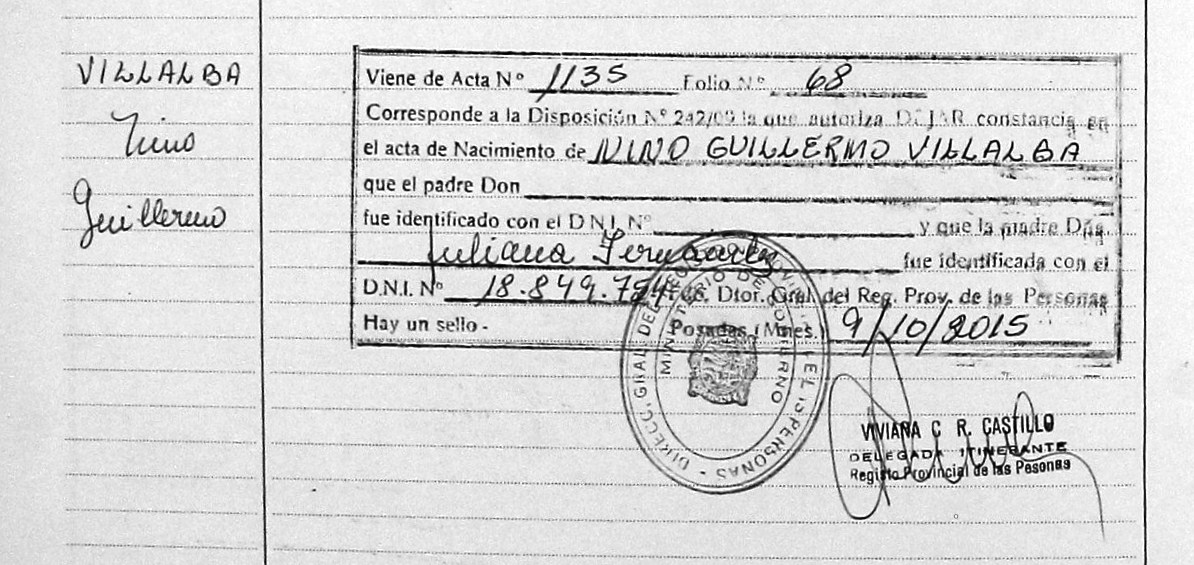 VILLALBA
Nino
Guillermo
Viene de Acta Nº 1135 Folio Nº 68
Corresponde a la Disposición Nº 242/09 la que autoriza DEJAR constancia en
el acta de Nacimiento de NINO GUILLERMO VILLALBA
que el padre Don
fue identificado con el D.N.I. Nº y que la madre Dña.
Juliana
fue identificada con el
D.N.I. Nº 18.849.7 Dtor. Gral. del Reg. Prov. de las Personas
Hay un sello - Posadas (Mnes.) 9/10/2015
DIRECC. GRAL. DEL PERSONAS
MINISTERIO DE GOBIERNO
VIVIANA C R. CASTILLO
DELEGADA ITINERANTE
Registro Provincial de las Pesonas